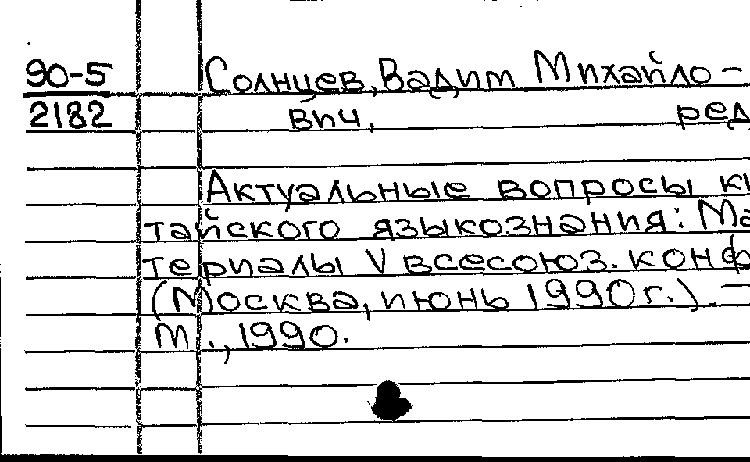 90-5 Солнцев, Вадим Михайло-
2182 вич, ред
Актуальные вопросы ки
тайского языкознания: Ма
териалы V всесоюз. конф
(Москва, июнь 1990 г.). –
М., 1990.